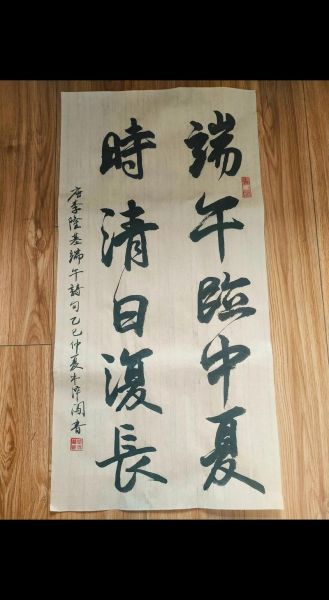 端午臨中夏
時清日復長
唐李隆基端午詩句乙巳仲夏